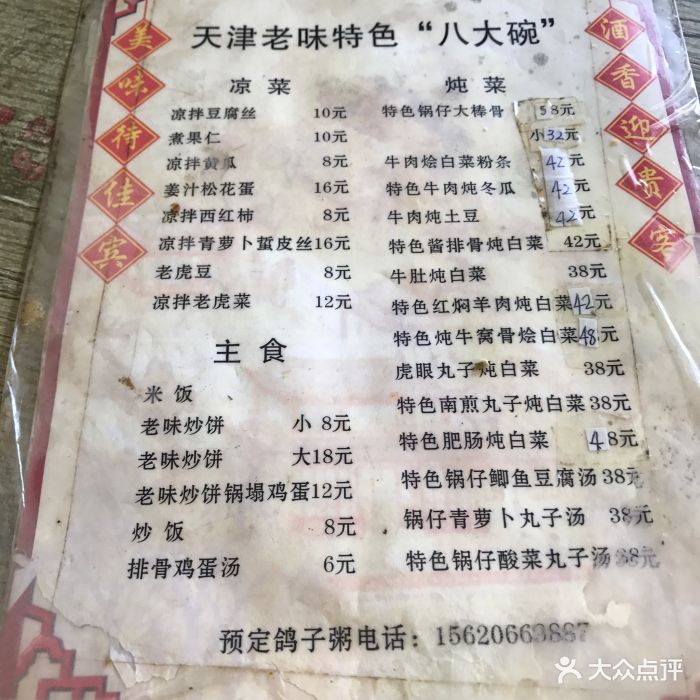 天津老味特色“八大碗”
美味待佳宾
酒香迎贵客
凉菜
凉拌豆腐丝 10元
煮果仁 10元
凉拌黄瓜 8元
姜汁松花蛋 16元
凉拌西红柿 8元
凉拌青萝卜蜇皮丝16元
老虎豆 8元
凉拌老虎菜 12元
主食
米饭
老味炒饼 小 8元
老味炒饼 大18元
老味炒饼锅塌鸡蛋12元
炒饭 8元
排骨鸡蛋汤 6元
炖菜
特色锅仔大棒骨 58元
小32元
牛肉烩白菜粉条 42元
特色牛肉炖冬瓜 42元
牛肉炖土豆 42元
特色酱排骨炖白菜 42元
牛肚炖白菜 38元
特色红焖羊肉炖白菜42元
特色炖牛窝骨烩白菜48元
虎眼丸子炖白菜 38元
特色南煎丸子炖白菜38元
特色肥肠炖白菜 48元
特色锅仔鲫鱼豆腐汤38元
锅仔青萝卜丸子汤 38元
特色锅仔酸菜丸子汤38元
预定鸽子粥电话：15620663887
大众点评